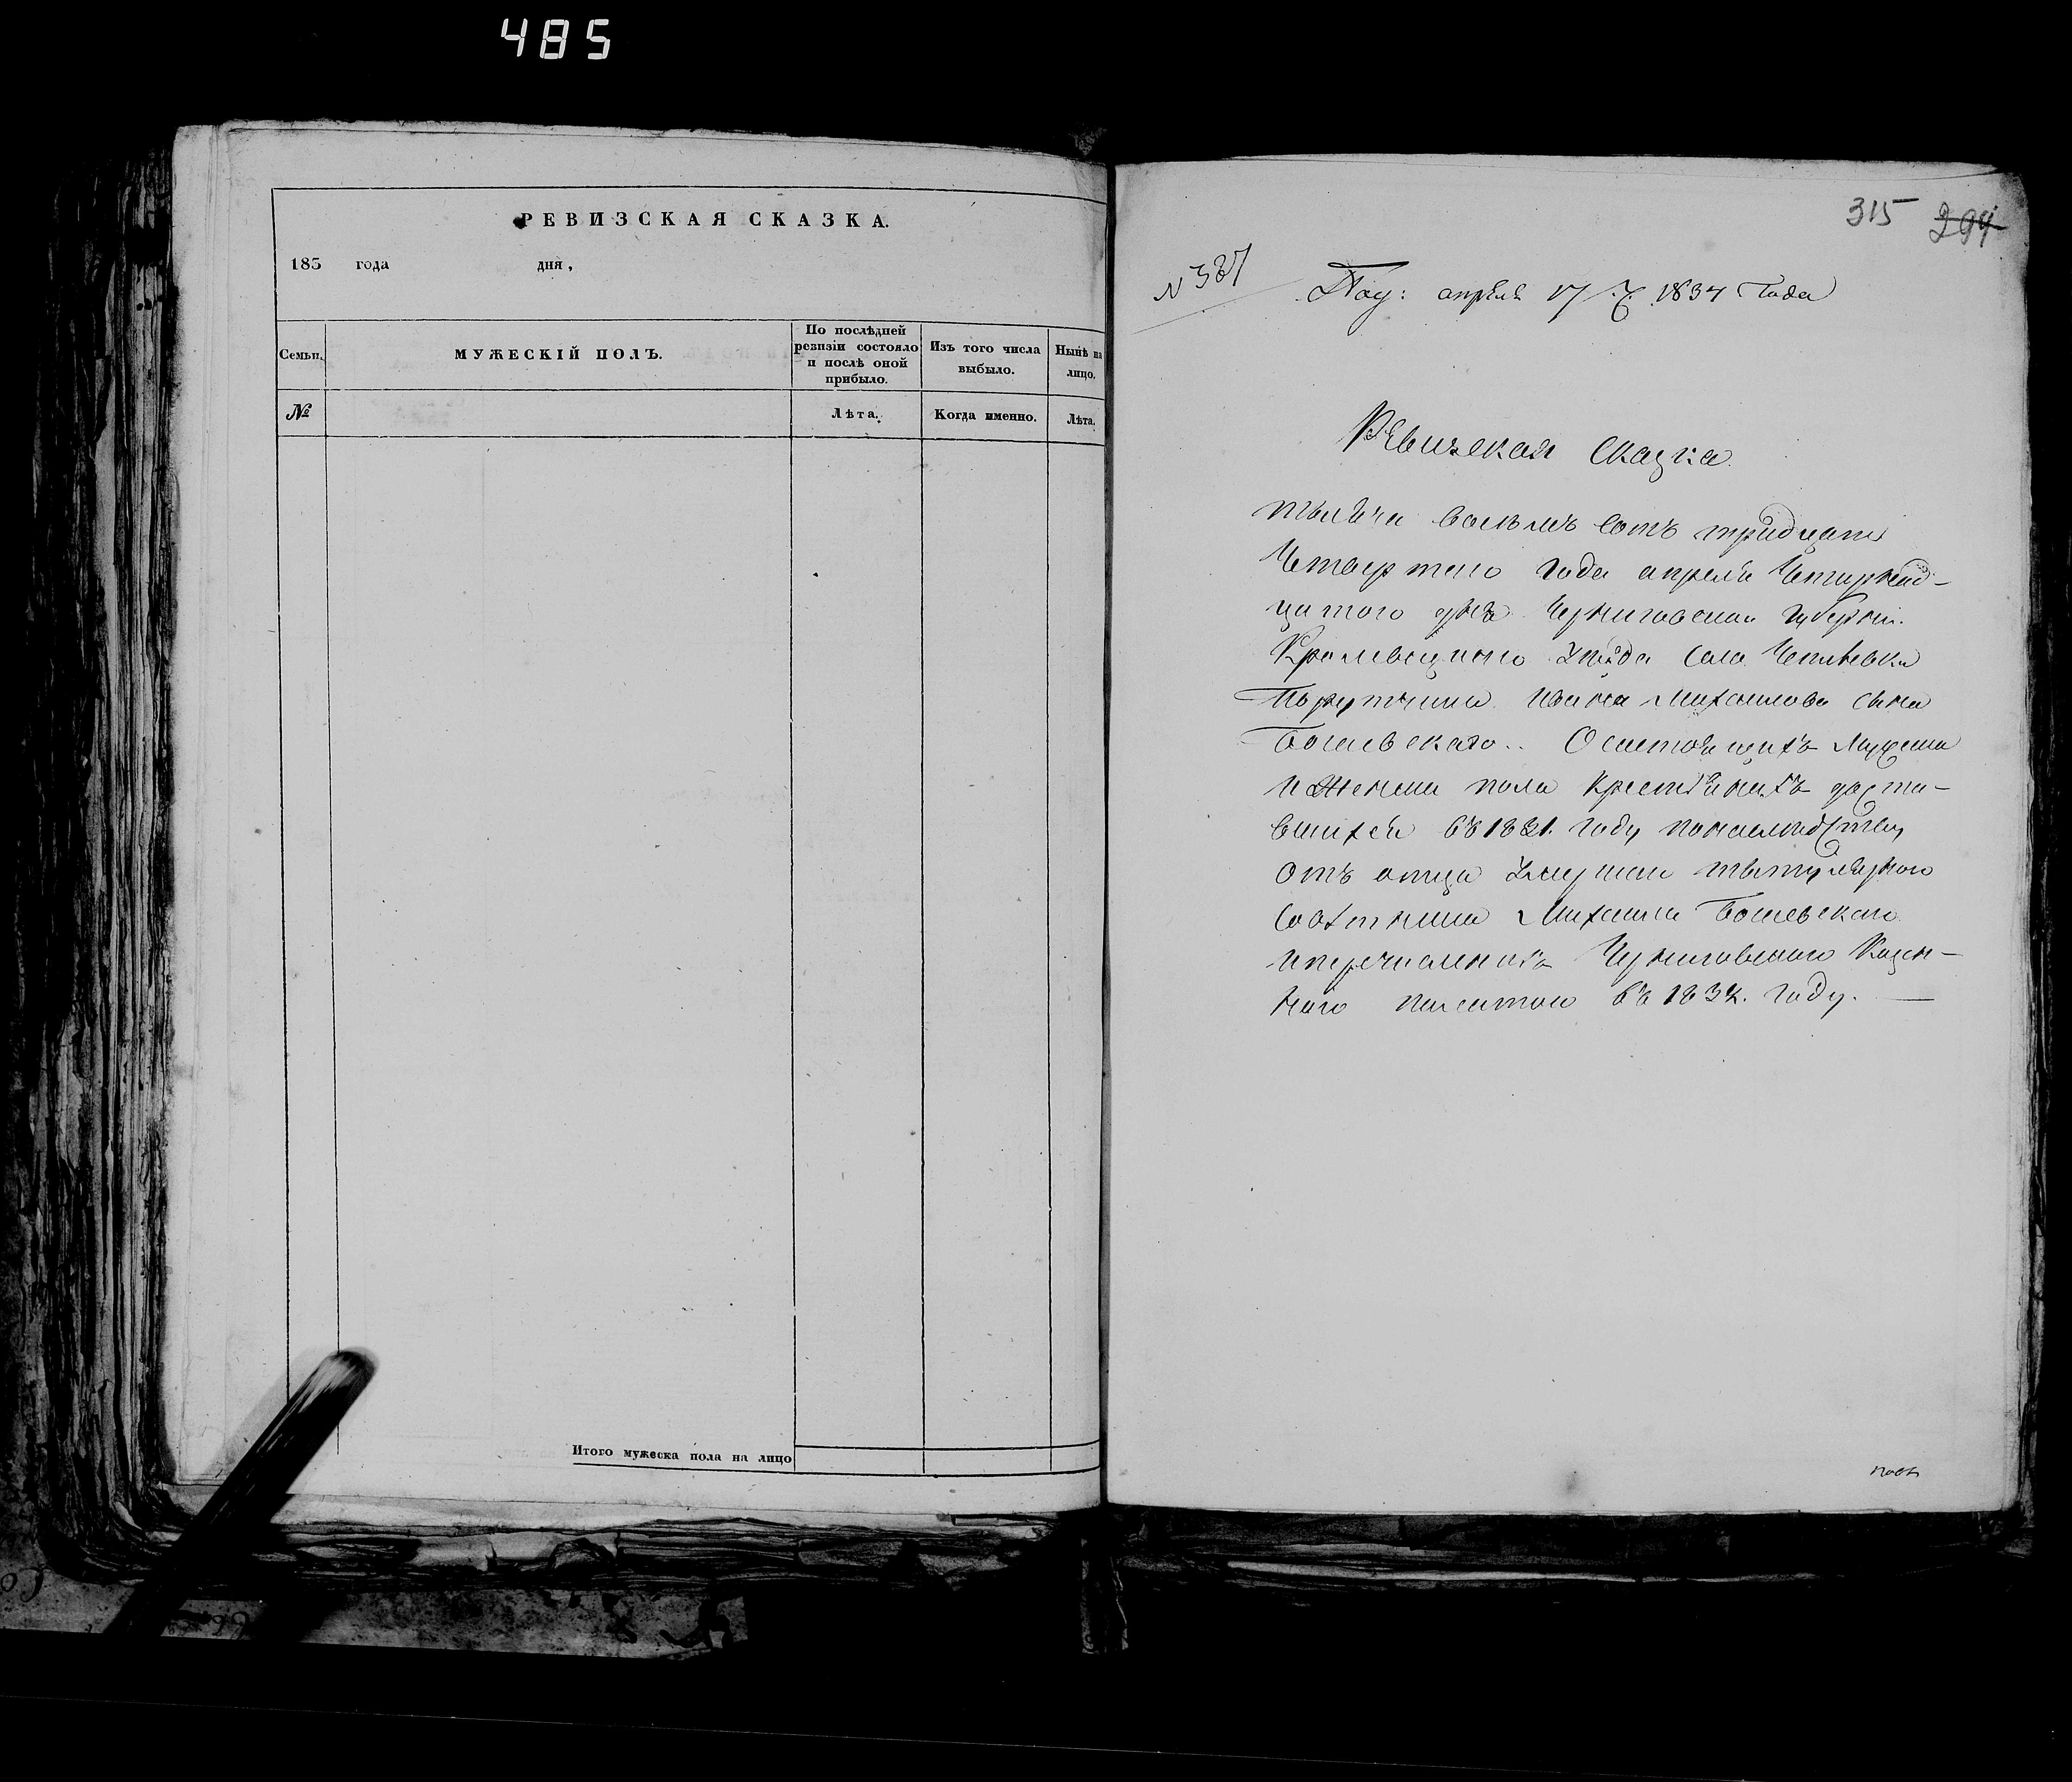 485
РЕВИЗСКАЯ СКАЗКА.
185 года дня,
Семьи.
МУЖЕСКІЙ ПОЛЪ.
По послѣдней ревизіи состояло и послѣ оной прибыло.
Изъ того числа выбыло.
Нынѣ на лицо.
№
Лѣта.
Когда именно.
Лѣта.
Итого мужеска пола на лицо
315 294
N 387
Пол: апрѣля 17 д. 1834 Года
Ревизская Сказка.
тысяча восемь сотъ тридцать
Четвертого Года апреля Четырнад-
цатого дня Черниговской Губерніи.
Кролевецкого уѣзда села
Порутчика Ивана Михаилова сына
О состоящихъ Мужеска
и Женска пола Крестьянахъ доста-
вшихся въ 1821. году понаследству
отъ отца умершаго титулярного
Советника Михаила
иперечисленихъ Черниговскою Казен-
ною палатою въ 1832. году.